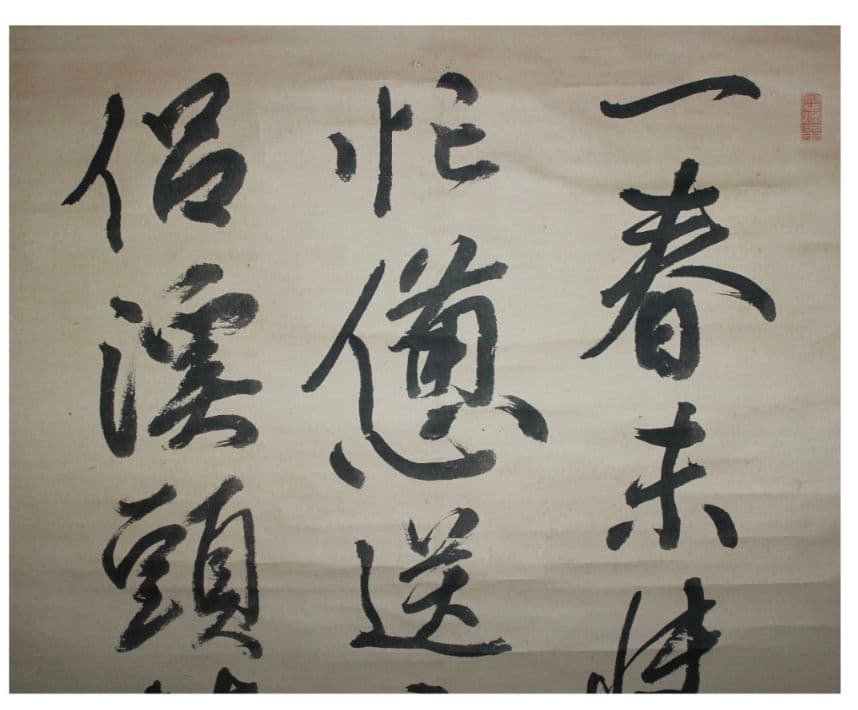 一春未
忙憊送
侶溪頭